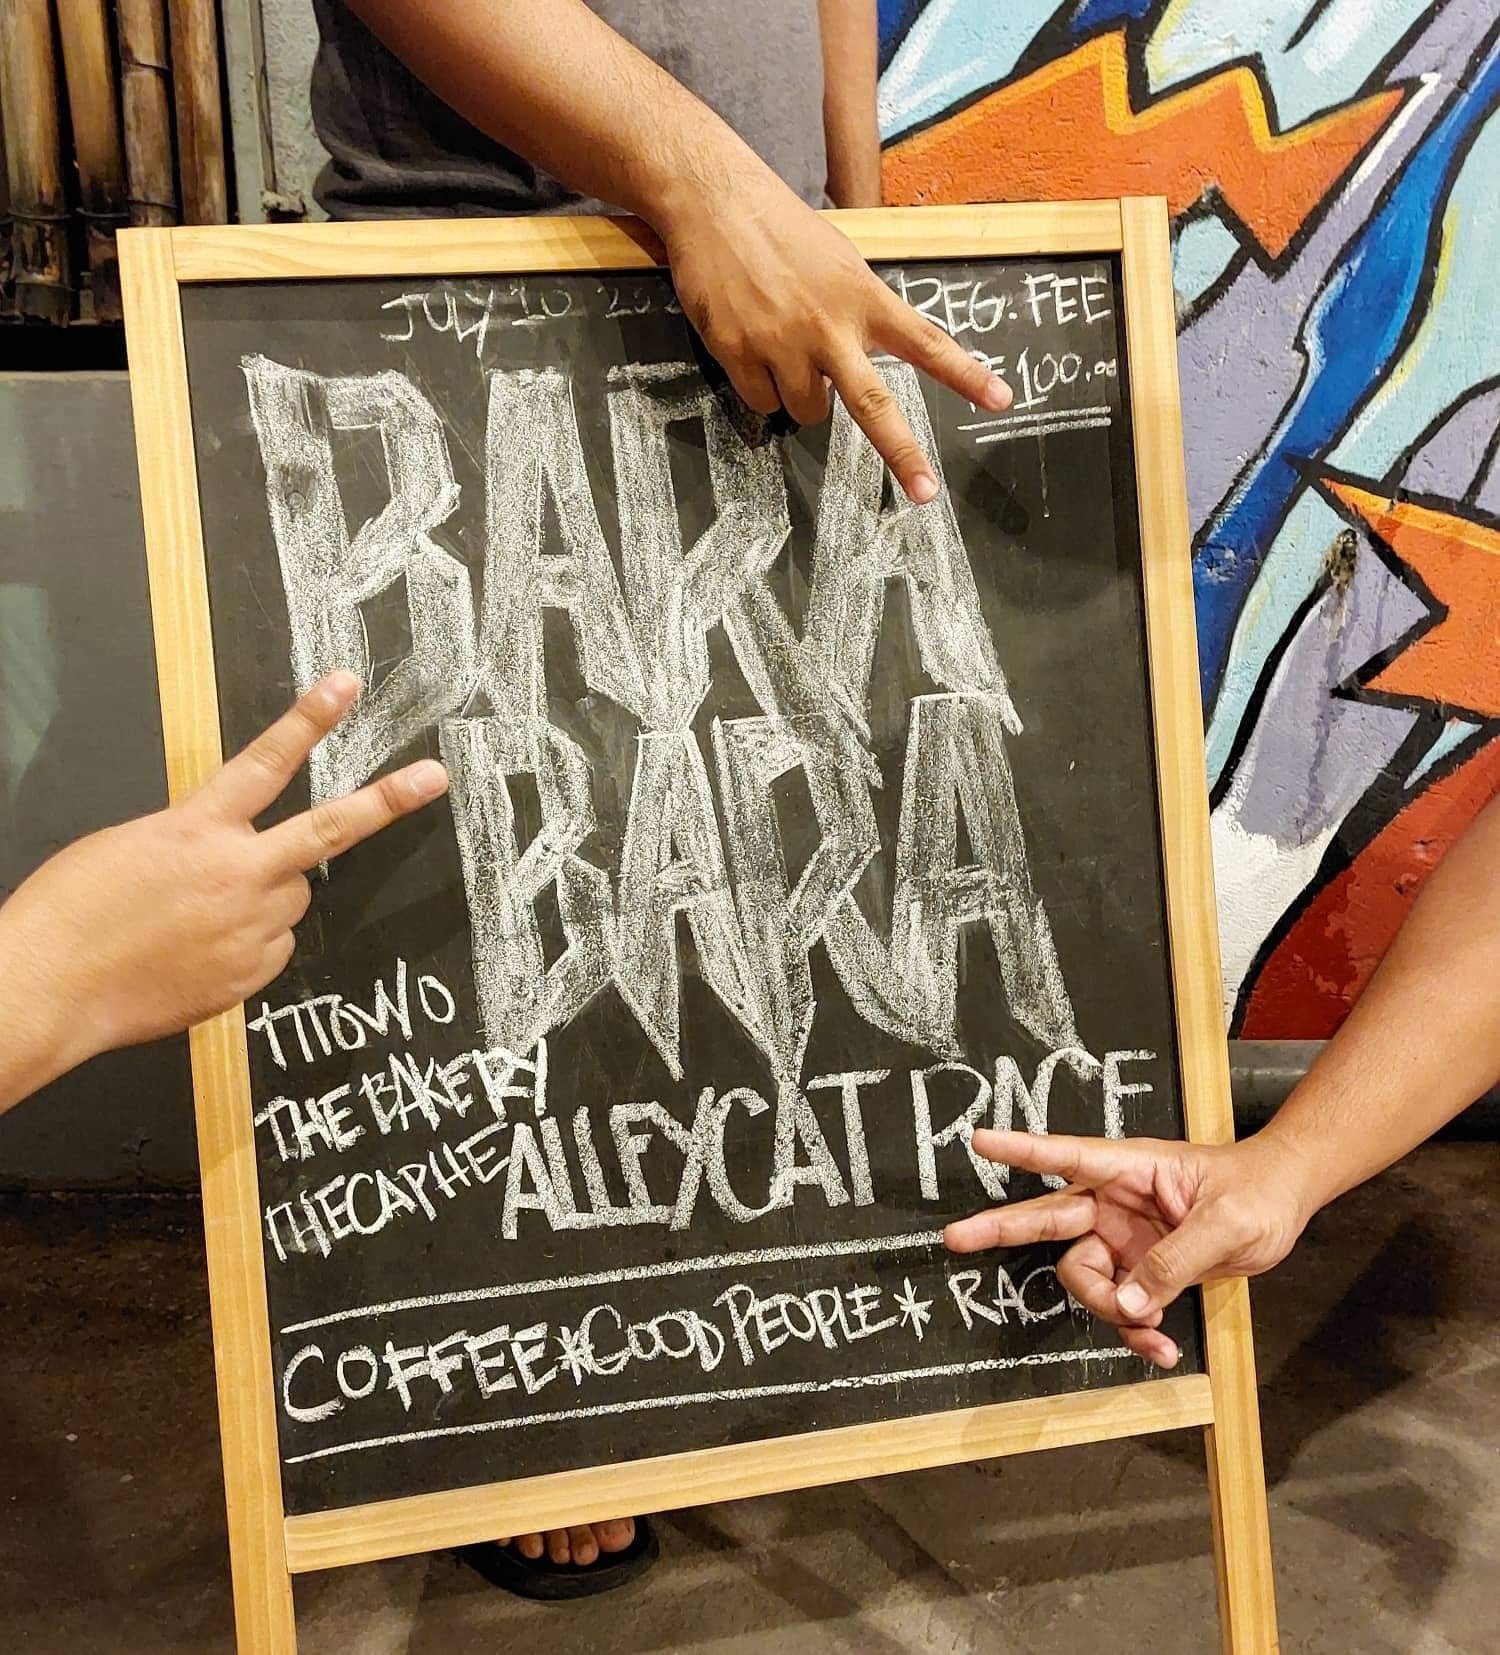 JULY 10
REG. FEE
₱ 100.00
BARA
BARA
TITOW/O
THE BAKERY
THECAPHE
ALLEYCAT RACE
COFFEE*GOOD PEOPLE*